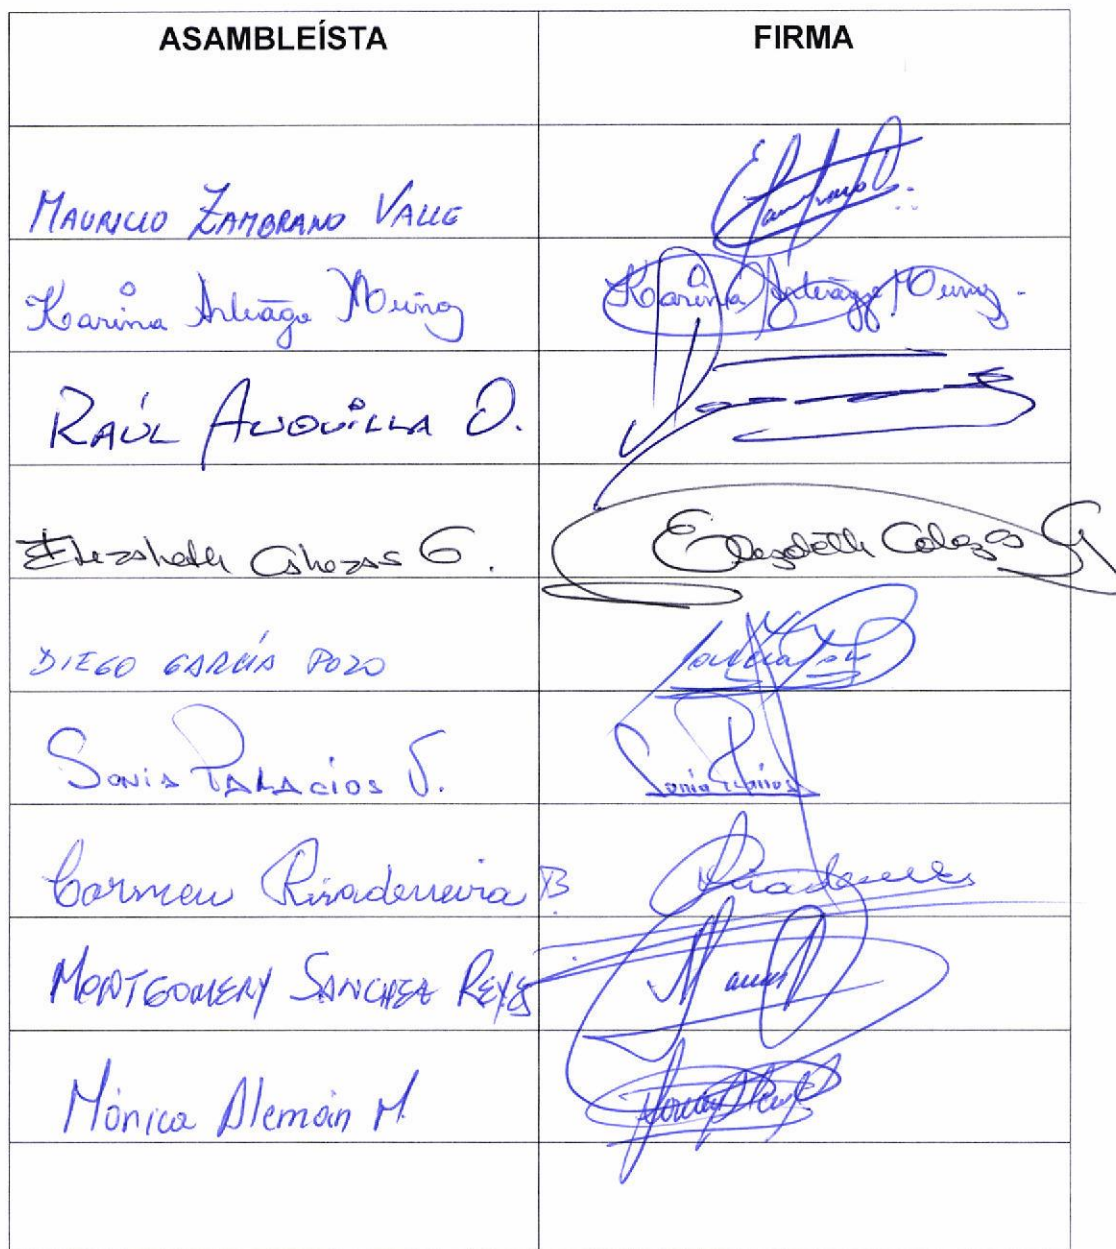 ASAMBLEÍSTA FIRMA
MAURICIO ZAMBRANO VALLE
Karina Arteaga Muñoz Karina Arteaga Muñoz.
RAÚL AUQUILLA O.
Elizabeth Cabezas G. Elizabeth Cabezas G
DIEGO GARCÍA POZO
SONIA PALACIOS V. Sonia Palacios
Carmen Rivadeneira B. Rivadeneira
MONTGOMERY SANCHEZ REYES
Mónica Alemán M.